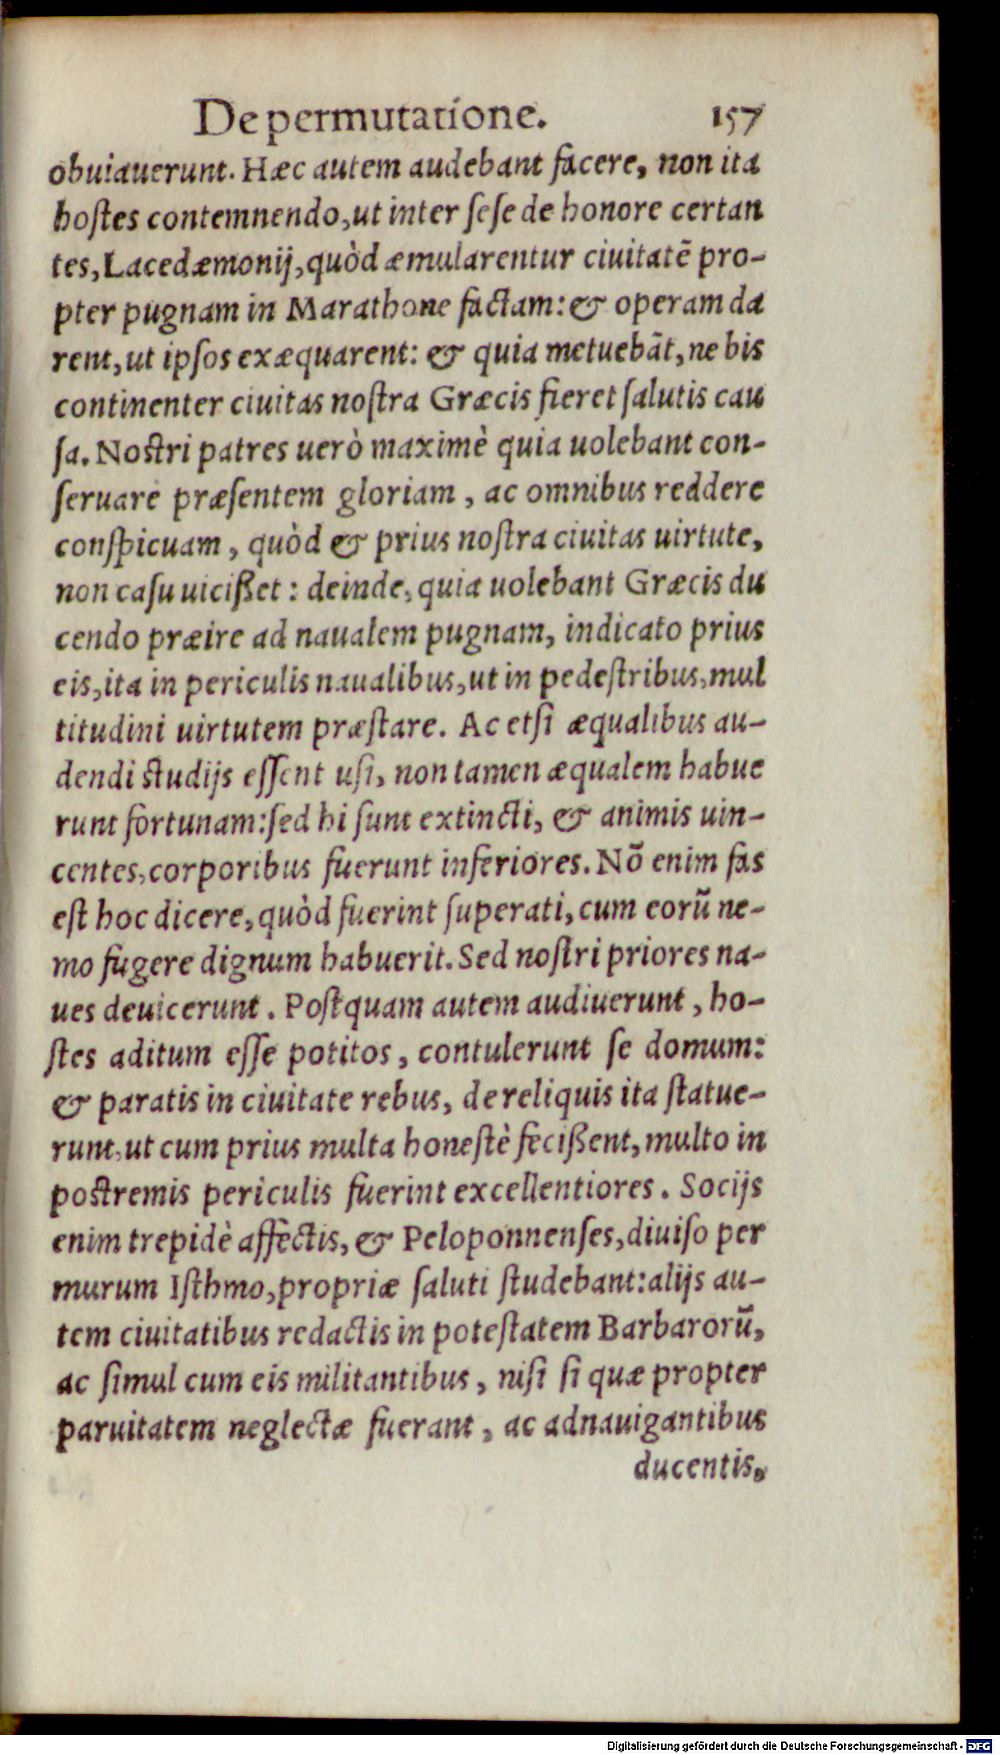 De permutatione. 157
obuiauerunt. Hæc autem audebant facere, non ita
hoſtes contemnendo, ut inter ſeſe de honore certan
tes, Lacedæmonij, quòd æmularentur ciuitatẽ pro-
pter pugnam in Marathone factam: & operam da
rent, ut ipſos exæquarent: & quia metuebãt, ne bis
continenter ciuitas noſtra Græcis fieret ſalutis cau
ſa. Noſtri patres uerò maximè quia uolebant con-
ſeruare præſentem gloriam, ac omnibus reddere
conſpicuam, quòd & prius noſtra ciuitas uirtute,
non caſu uicißet: deinde, quia uolebant Græcis du
cendo præire ad naualem pugnam, indicato prius
eis, ita in periculis naualibus, ut in pedeſtribus, mul
titudini uirtutem præſtare. Ac etſi æqualibus au-
dendi ſtudijs eſſent uſi, non tamen æqualem habue
runt fortunam: ſed hi ſunt extincti, & animis uin-
centes, corporibus fuerunt inferiores. Nõ enim fas
eſt hoc dicere, quòd fuerint ſuperati, cum eorũ ne-
mo fugere dignum habuerit. Sed noſtri priores na-
ues deuicerunt. Poſtquam autem audiuerunt, ho-
ſtes aditum eſſe potitos, contulerunt ſe domum:
& paratis in ciuitate rebus, de reliquis ita ſtatue-
runt, ut cum prius multa honeſtè fecißent, multo in
poſtremis periculis fuerint excellentiores. Socijs
enim trepidè affectis, & Peloponnenſes, diuiſo per
murum Iſthmo, propriæ ſaluti ſtudebant: alijs au-
tem ciuitatibus redactis in poteſtatem Barbarorũ,
ac ſimul cum eis militantibus, niſi ſi quæ propter
paruitatem neglectæ fuerant, ac adnauigantibus
ducentis,
Digitalisierung gefördert durch die Deutsche Forschungsgemeinschaft - DFG